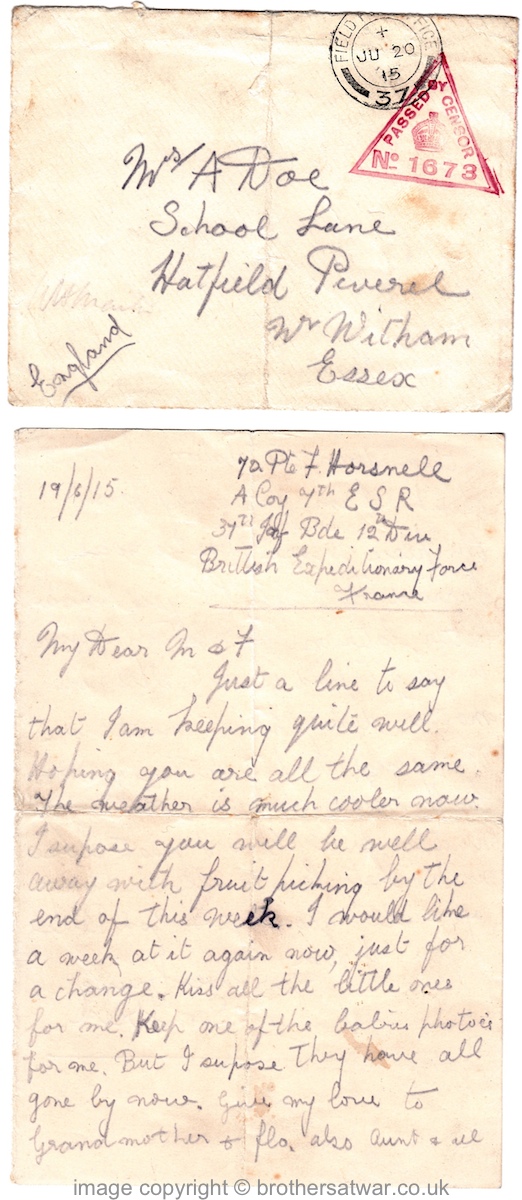 FIELD POST OFFICE
JU 20
15
37
PASSED BY CENSOR
No 1673
Mrs A Doe
School Lane
Hatfield Peverel
Nr Witham
Essex
England
19/6/15.
Pte F. Horsnell
A Coy 7th E S R
37th Inf Bde 12th Div
British Expeditionary Force
France
My Dear M & F
Just a line to say
that I am keeping quite well.
Hoping you are all the same.
The weather is much cooler now.
I supose you will be well
away with fruit picking by the
end of this week. I would like
a week at it again now, just for
a change. Kiss all the little ones
for me. Keep one of the babies photoes
for me. But I supose they have all
gone by now. Give my love to
Grandmother & flo. also Aunt &
image copyright © brothersatwar.co.uk